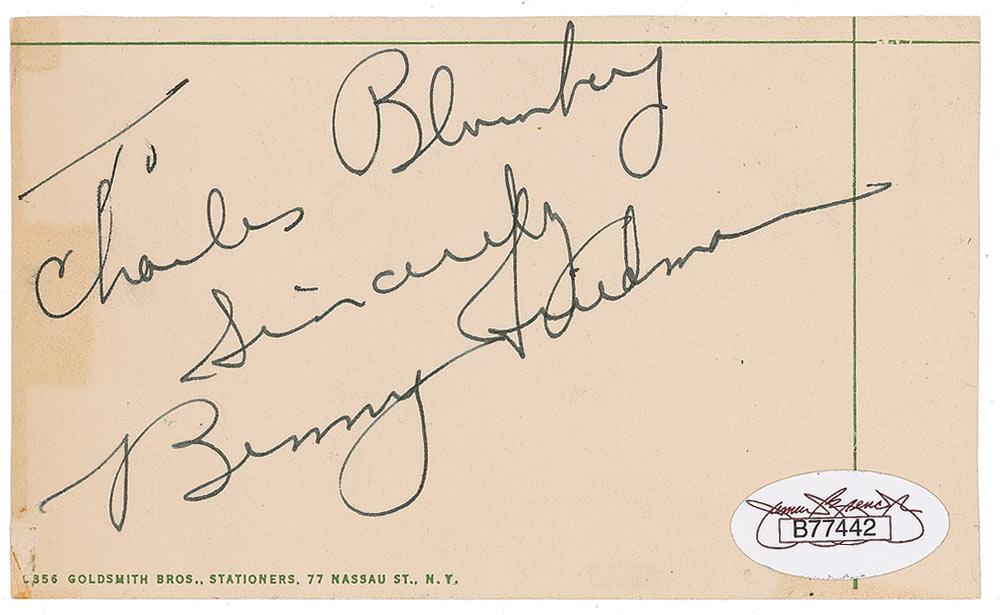 To
Charles Blumberg
Sincerely
Benny Friedman
James Spence Jr
B77442
356 GOLDSMITH BROS., STATIONERS, 77 NASSAU ST., N.Y.